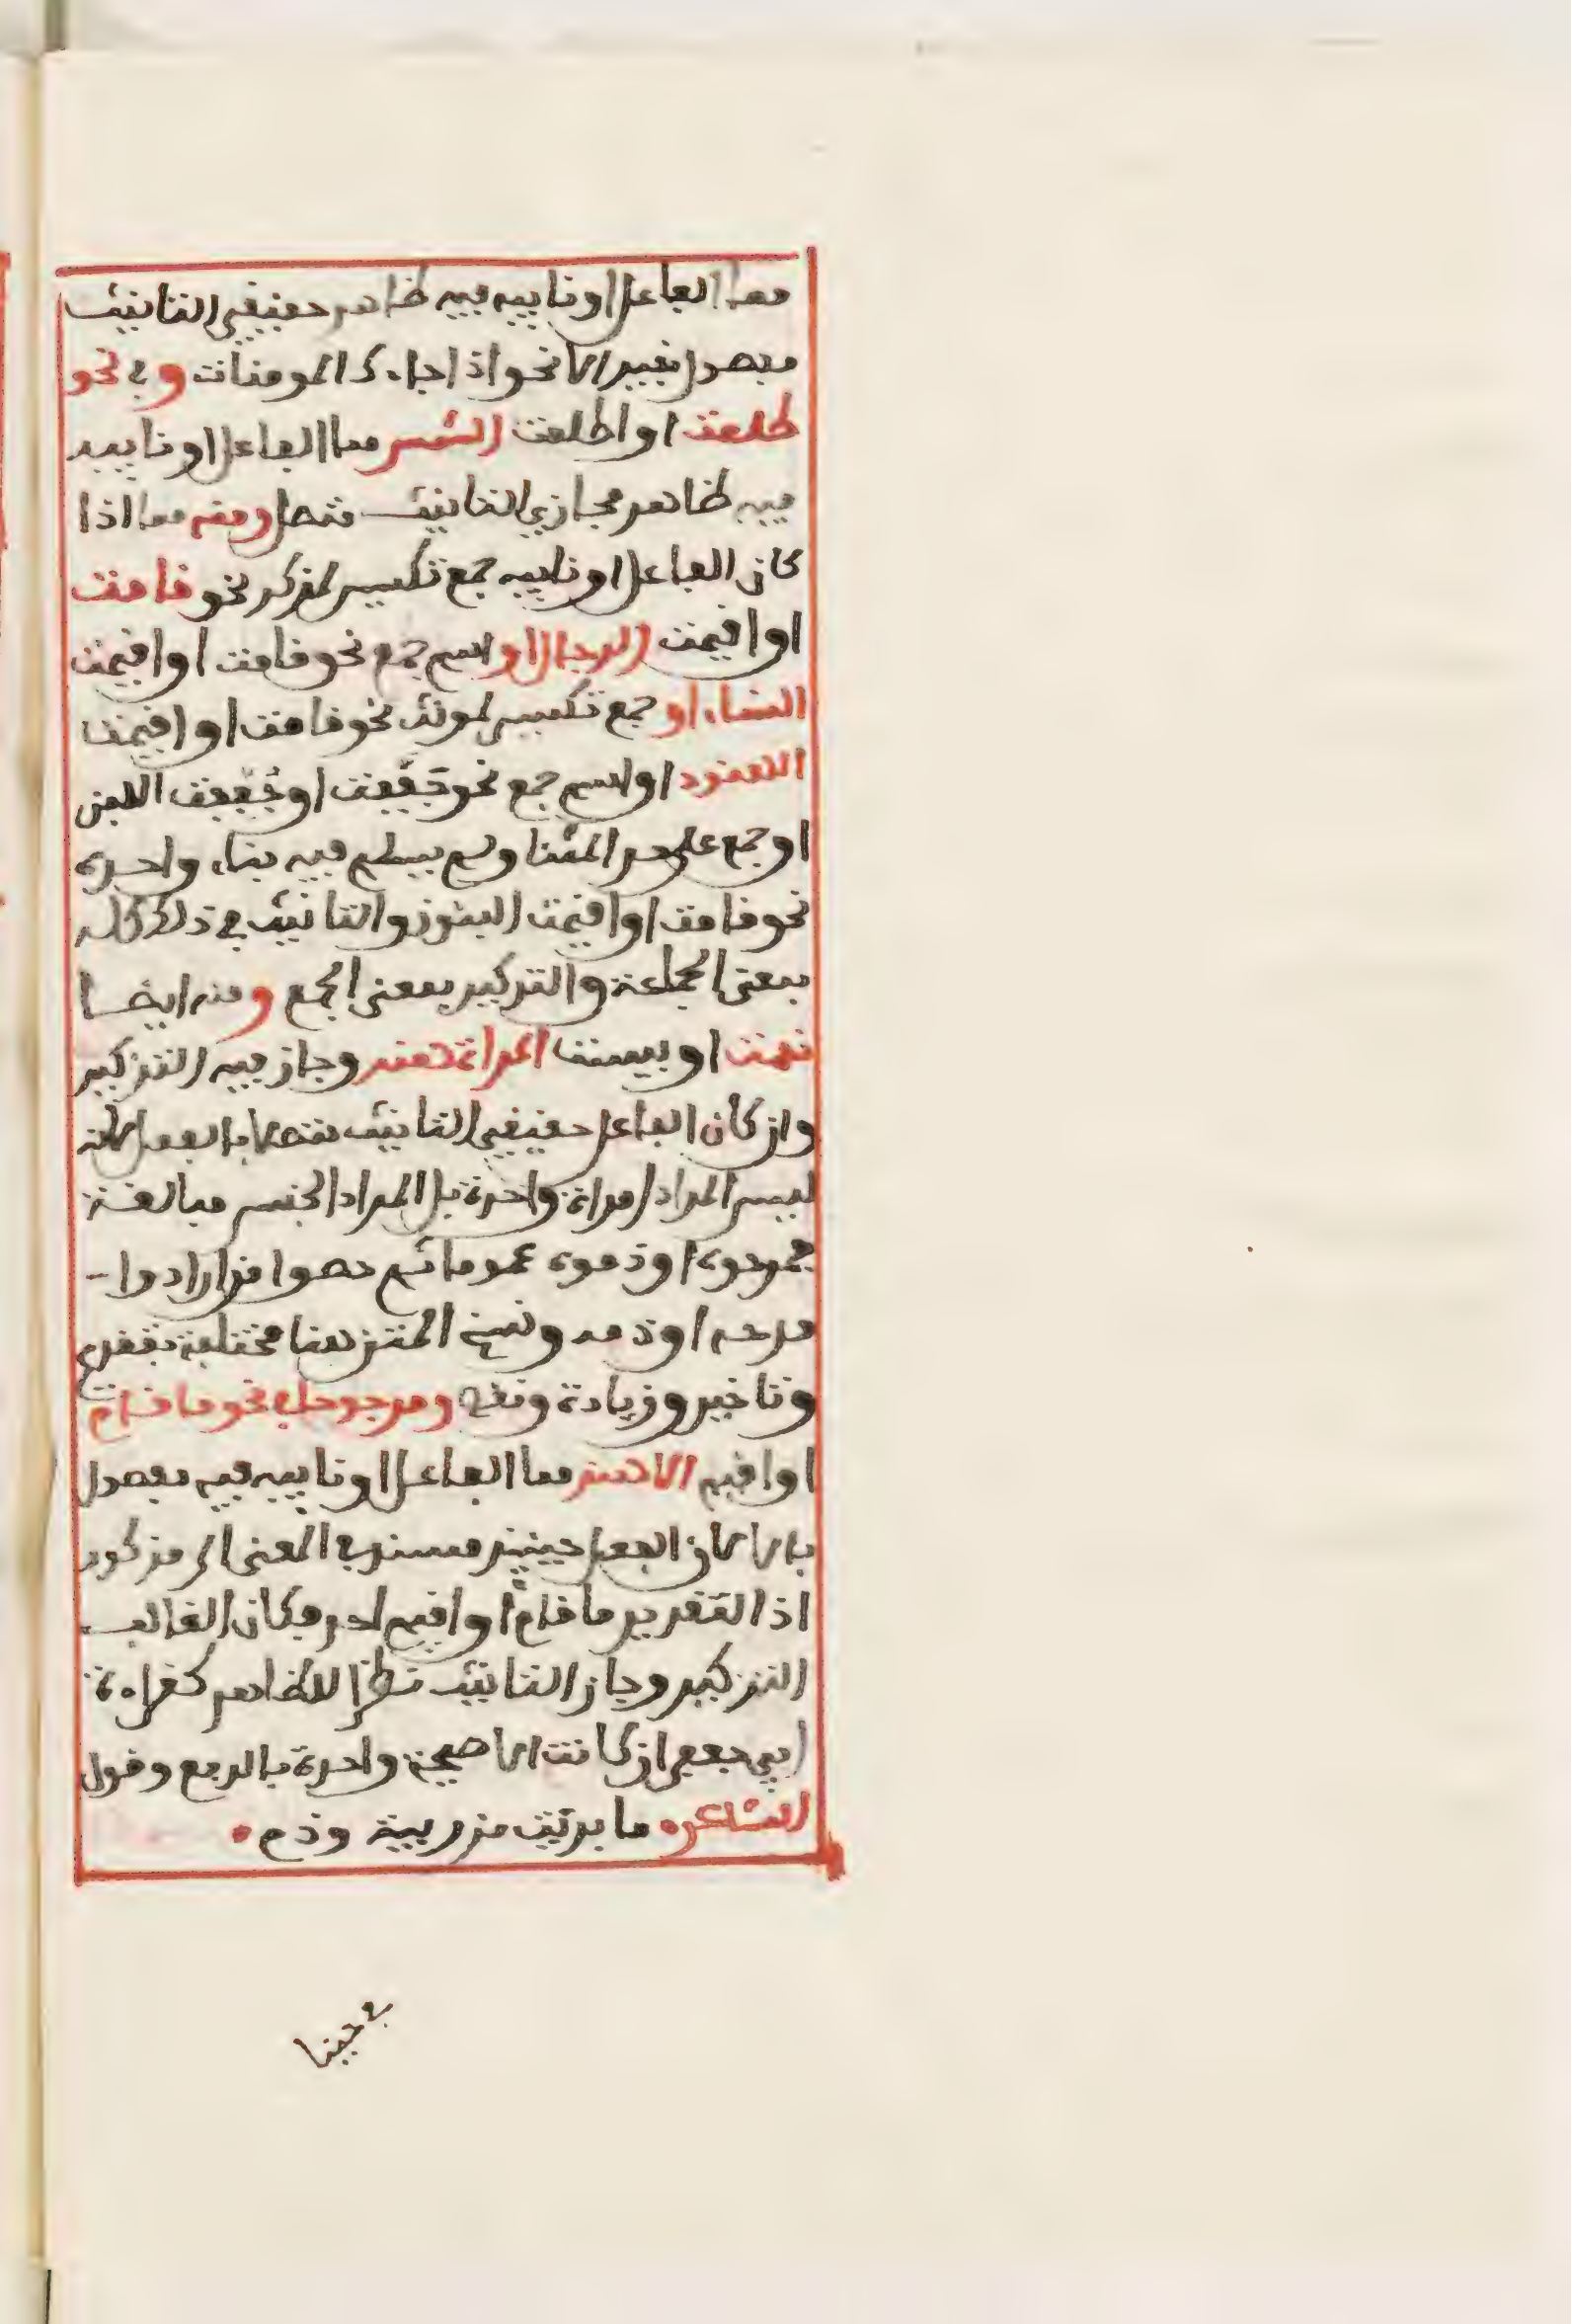 مما الفاعل او نايبه فيه ظاهر حقيقي التانيث
مفصول بغير الا نحو اذا جاءك المومنات وفي نحو
طلعت او اطلعت الشمس مما الفاعل او نايبه
فيه ظاهر مجازي التانيث متصل ومنه مما اذا
كان الفاعل او نايبه جمع تكسير لمذكر نحو قامت
او اقيمت الرجال او اسم جمع نحو قامت او اقيمت
النساء او جمع تكسير لمونث نحو قامت او اقيمت
الهنود او اسم جمع نحو او اللبن
او جمع على حد المثنا ولم يسلم فيه بناء واحده
نحو قامت او اقيمت البنون والتانيث في ذلك كله
بمعنى الجماعة والتذكير بمعنى الجمع ومنه ايضا
نعمت او بيست المراة هند وجاز فيه التذكير
وان كان الفاعل حقيقي التانيث متصلا بالفعل لانه
ليس المراد امراة واحدة بل المراد الجنس مبالغة
في مدحه او ذمه عموما ثم خصوا من ارادوا
مدحه او ذمه ونسخ المتن هنا مختلفة بتقديم
وتاخير وزيادة ونقص ومرجوحا في نحو ما قام
او اقيم الا هند مما الفاعل او نايبه فيه مفصول
بالا لان الفعل حينيذ مسند في المعنى لمذكور
اذ التقدير ما قام او اقيم احد فكان الغالب
التذكير وجاز التانيث نظرا للظاهر كقراءة
ابي جعفر ان كانت الا صيحة واحدة بالرفع وقول
الشاعر ما بريت من ريبة وذم
في حربنا